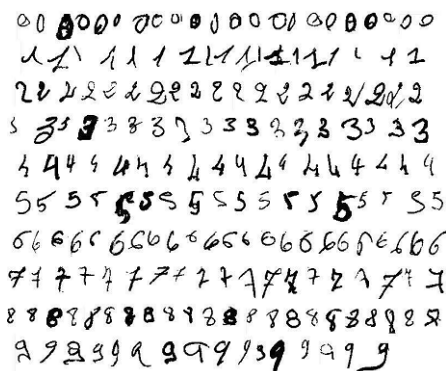 0 0 0 0 0 0 0 0 0 0 0 0 0 0 0 0 0 0 0 0 0 0
1 1 1 1 1 1 1 1 1 1 1 1 1 1 1 1
2 2 2 2 2 2 2 2 2 2 2 2 2 2 2 2 2 2 2
3 3 3 3 3 8 3 3 3 3 3 3 3 3 3 3 3 3
4 4 4 4 4 4 4 4 4 4 4 4 4 4 4 4 4 4 4
5 5 5 5 5 5 5 5 5 5 5 5 5 5 5 5 5 5 5
6 6 6 6 6 6 6 6 6 6 6 6 6 6 6 6 6 6 6 6 6 6
7 7 7 7 7 7 7 7 7 7 7 7 7 7 7 7 7 7
8 8 8 8 8 8 8 8 8 8 8 8 8 8 8 8 8 8 8 8 8 8
9 9 9 9 9 9 9 9 9 9 9 9 9 9 9 9